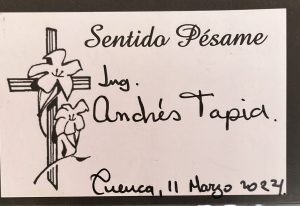 Sentido Pésame
Ing.
Andrés Tapia.
Cuenca, 11 Marzo 2024.